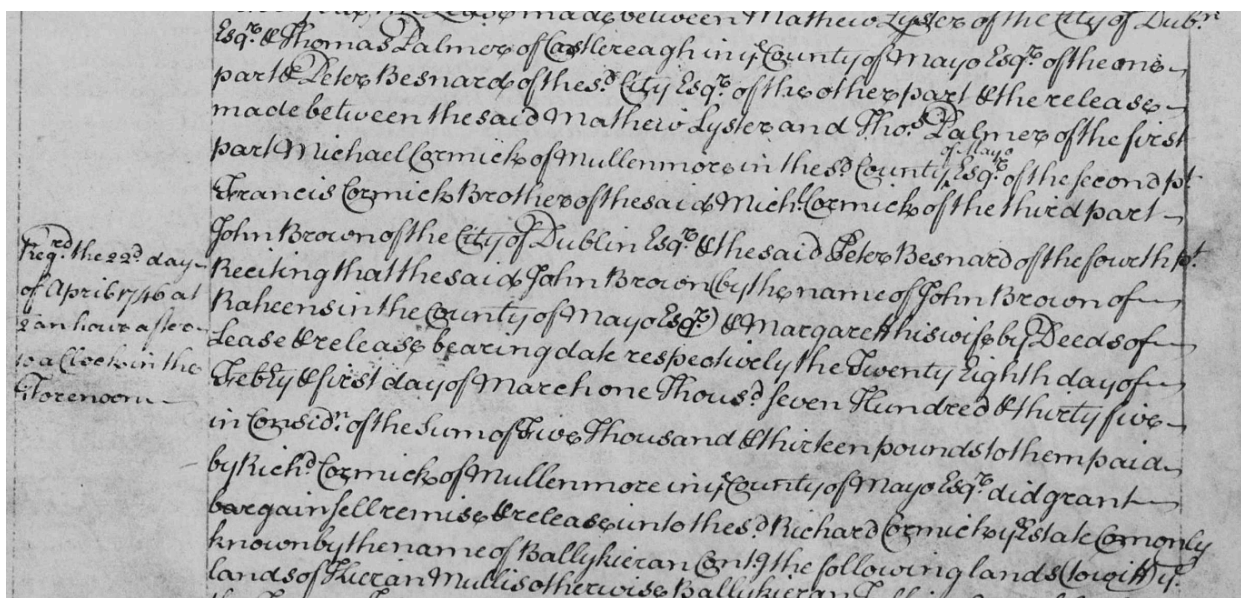 made between Mathew Lyster of the City of Dubn.
Esqr. & Thomas Palmer of Castlereagh in ye County of Mayo Esqr. of the one
part & Peter Besnard of the sd. City Esqr. of the other part & the release
made between the said Mathew Lyster and Thos. Palmer of the first
part Michael Cormick of Mullenmore in the sd. County of Mayo Esqr. of the second pt.
Francis Cormick Brother of the said Michl. Cormick of the third part
John Brown of the City of Dublin Esqr. & the said Peter Besnard of the fourth pt.
Reciting that the said John Brown (by the name of John Brown of
Raheens in the County of Mayo Esqr.) & Margarett his wife by Deeds of
Lease & release bearing date respectively the Twenty Eighth day of
Febry & first day of March one Thousd. seven Hundred & thirty five
in Considn. of the Sum of Five Thousand & thirteen pounds to them paid
by Richd. Cormick of Mullenmore in ye County of Mayo Esqr. did grant
bargain sell remise & release unto the sd. Richard Cormick ye Estate Comonly
known by the name of Ballykieran Contg. the following lands (to witt) ye.
lands of Kieran Mullis otherwise Ballykieran
Regrd. the 22d. day
of April 1746 at
an hour after
10 a Clock in the
Forenoon